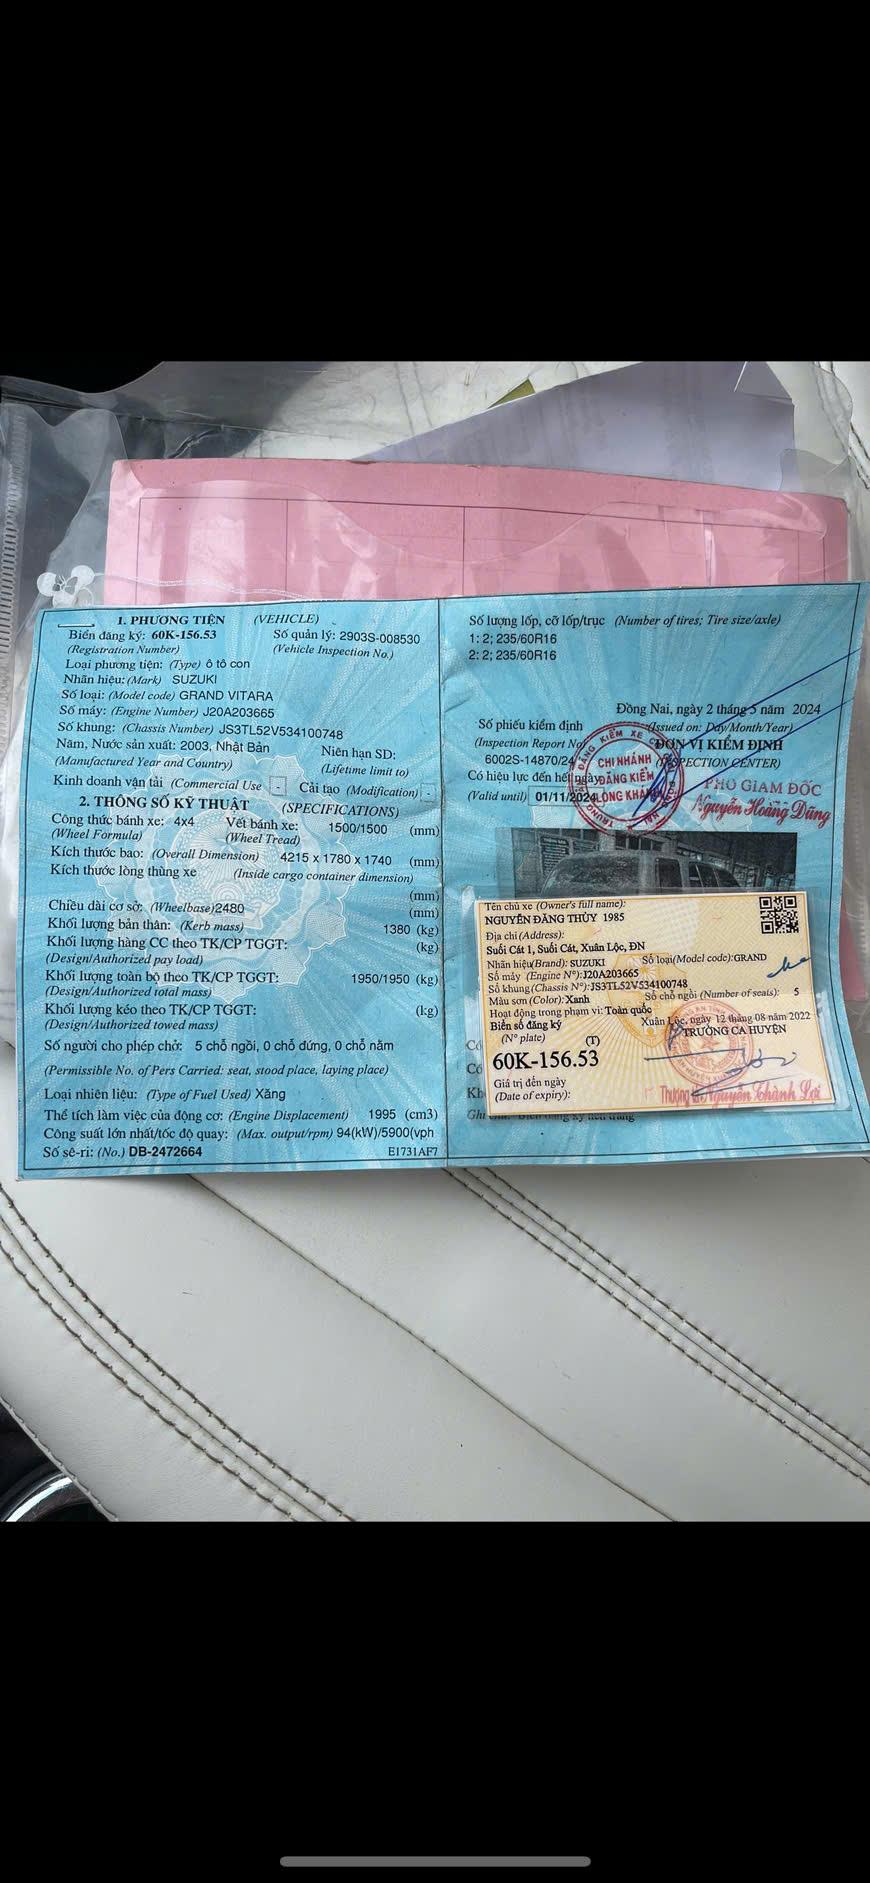 1. PHƯƠNG TIỆN (VEHICLE)
Biển đăng ký: 60K-156.53 Số quản lý: 2903S-008530
(Registration Number) (Vehicle Inspection No.)
Loại phương tiện: (Type) ô tô con
Nhãn hiệu: (Mark) SUZUKI
Số loại: (Model code) GRAND VITARA
Số máy: (Engine Number) J20A203665
Số khung: (Chassis Number) JS3TL52V534100748
Năm, Nước sản xuất: 2003, Nhật Bản Niên hạn SD:
(Manufactured Year and Country) (Lifetime limit to)
Kinh doanh vận tải (Commercial Use - Cải tạo (Modification) -
2. THÔNG SỐ KỸ THUẬT (SPECIFICATIONS)
Công thức bánh xe: 4x4 Vết bánh xe: 1500/1500 (mm)
(Wheel Formula) (Wheel Tread)
Kích thước bao: (Overall Dimension) 4215 x 1780 x 1740 (mm)
Kích thước lòng thùng xe (Inside cargo container dimension)
(mm)
Chiều dài cơ sở: (Wheelbase) 2480 (mm)
Khối lượng bản thân: (Kerb mass) 1380 (kg)
Khối lượng hàng CC theo TK/CP TGGT: (kg)
(Design/Authorized pay load)
Khối lượng toàn bộ theo TK/CP TGGT: 1950/1950 (kg)
(Design/Authorized total mass)
Khối lượng kéo theo TK/CP TGGT: (kg)
(Design/Authorized towed mass)
Số người cho phép chở: 5 chỗ ngồi, 0 chỗ đứng, 0 chỗ nằm
(Permissible No. of Pers Carried: seat, stood place, laying place)
Loại nhiên liệu: (Type of Fuel Used) Xăng
Thể tích làm việc của động cơ: (Engine Displacement) 1995 (cm3)
Công suất lớn nhất/tốc độ quay: (Max. output/rpm) 94(kW)/5900(vph
Số sê-ri: (No.) DB-2472664 E1731AF7
Số lượng lốp, cỡ lốp/trục (Number of tires; Tire size/axle)
1: 2; 235/60R16
2: 2; 235/60R16
Đồng Nai, ngày 2 tháng 5 năm 2024
Số phiếu kiểm định (Issued on: Day/Month/Year)
(Inspection Report No) ĐƠN VỊ KIỂM ĐỊNH
6002S-14870/24 (INSPECTION CENTER)
Có hiệu lực đến hết ngày
(Valid until) 01/11/2024
CHI NHÁNH
ĐĂNG KIỂM
LONG KHÁNH
PHÓ GIÁM ĐỐC
Nguyễn Hoàng Dũng
Tên chủ xe (Owner's full name):
NGUYỄN ĐĂNG THỦY 1985
Địa chỉ (Address):
Suối Cát 1, Suối Cát, Xuân Lộc, ĐN
Nhãn hiệu(Brand): SUZUKI Số loại(Model code):GRAND
Số máy (Engine N°):J20A203665
Số khung (Chassis N°):JS3TL52V534100748
Màu sơn (Color): Xanh Số chỗ ngồi (Number of seats): 5
Hoạt động trong phạm vi: Toàn quốc
Xuân Lộc, ngày 12 tháng 08 năm 2022
Biển số đăng ký (T) TRƯỞNG CA HUYỆN
(N° plate)
60K-156.53
Giá trị đến ngày
(Date of expiry):
Nguyễn Thành Lợi